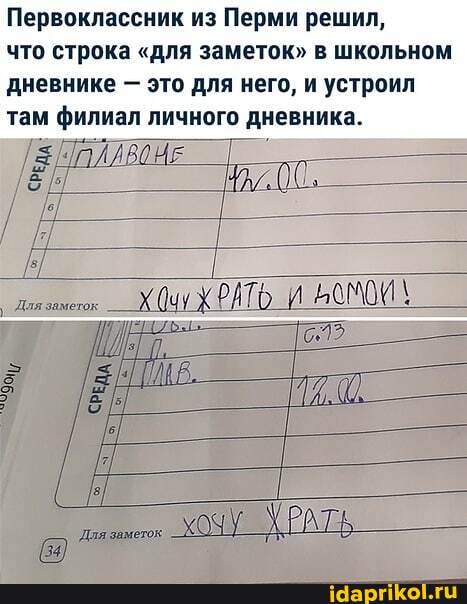 Первоклассник из Перми решил,
что строка «для заметок» в школьном
дневнике — это для него, и устроил
там филиал личного дневника.
СРЕДА
4 ПЛАВОНЕ
5 12.00.
6
7
8
Для заметок ХОЧУ ЖРАТЬ И ДОМОЙ!
С.13
3 П.
СРЕДА
4 ПЛАВ.
5 12.00.
6
7
8
Для заметок ХОЧУ ЖРАТЬ
34
idaprikol.ru